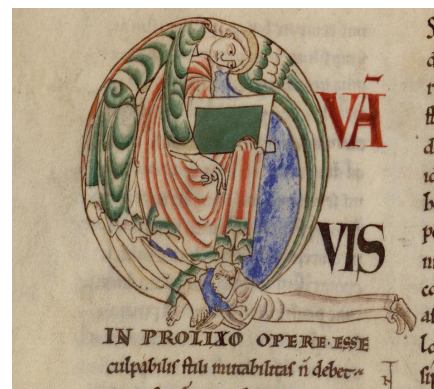 QVĀ
VIS
IN PROLIXO OPERE·ESSE
culpabilis stili mutabilitas n̄ debet